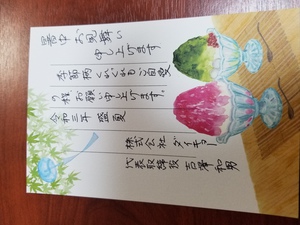 暑中お見舞い
申し上げます
季節柄くれぐれもご自愛
の程お願い申し上げます。
令和三年 盛夏
株式会社 ダイキョー
代表取締役 吉澤和男